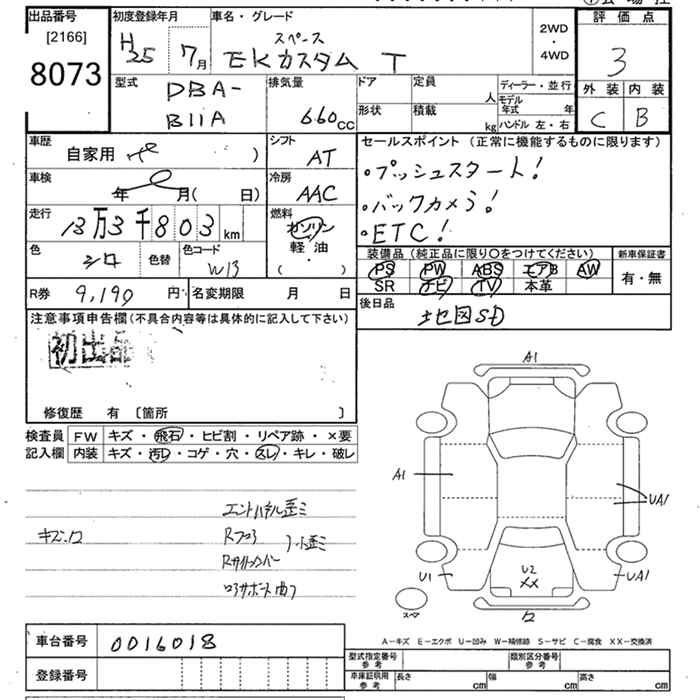 出品番号
[2166]
8073
初度登録年月
H25 7月
車名・グレード
スペース
EKカスタム T
2WD
・
4WD
評価点
3
外装 内装
C B
型式
DBA-
B11A
排気量
660cc
ドア
定員
人
形状
積載
kg
ディーラー・並行
モデル年式 年
ハンドル 左・右
車歴
自家用 )
シフト
AT
車検
年 月( 日)
冷房
AAC
走行
13万3千803km
燃料
ガソリン
軽・油
( ・ )
色
シロ
色替
色コード
W13
R券 9,190 円
名変期限 月 日
セールスポイント (正常に機能するものに限ります)
・プッシュスタート!
・バックカメラ!
・ETC!
装備品 (純正品に限り○をつけてください)
PS PW ABS エアB AW
SR ナビ TV 本革
新車保証書
有・無
後日品
地図SD
注意事項申告欄(不具合内容等は具体的に記入して下さい)
初出品
修復歴 有 〔箇所 〕
検査員
記入欄
FW キズ・飛石・ヒビ割・リペア跡・×要
内装 キズ・汚レ・コゲ・穴・スレ・キレ・破レ
キズ・凹
エンドパネル歪ミ
Rフロア
A1
A1
UA1
U1
U2
XX
UA1
スペア
A−キズ E−エクボ U−凹み W−補修跡 S−サビ C−腐食 XX−交換済
車台番号 0016018
登録番号
型式指定番号
参考
類別区分番号
参考
車庫証明用
参考
長さ cm
幅 cm
高さ cm